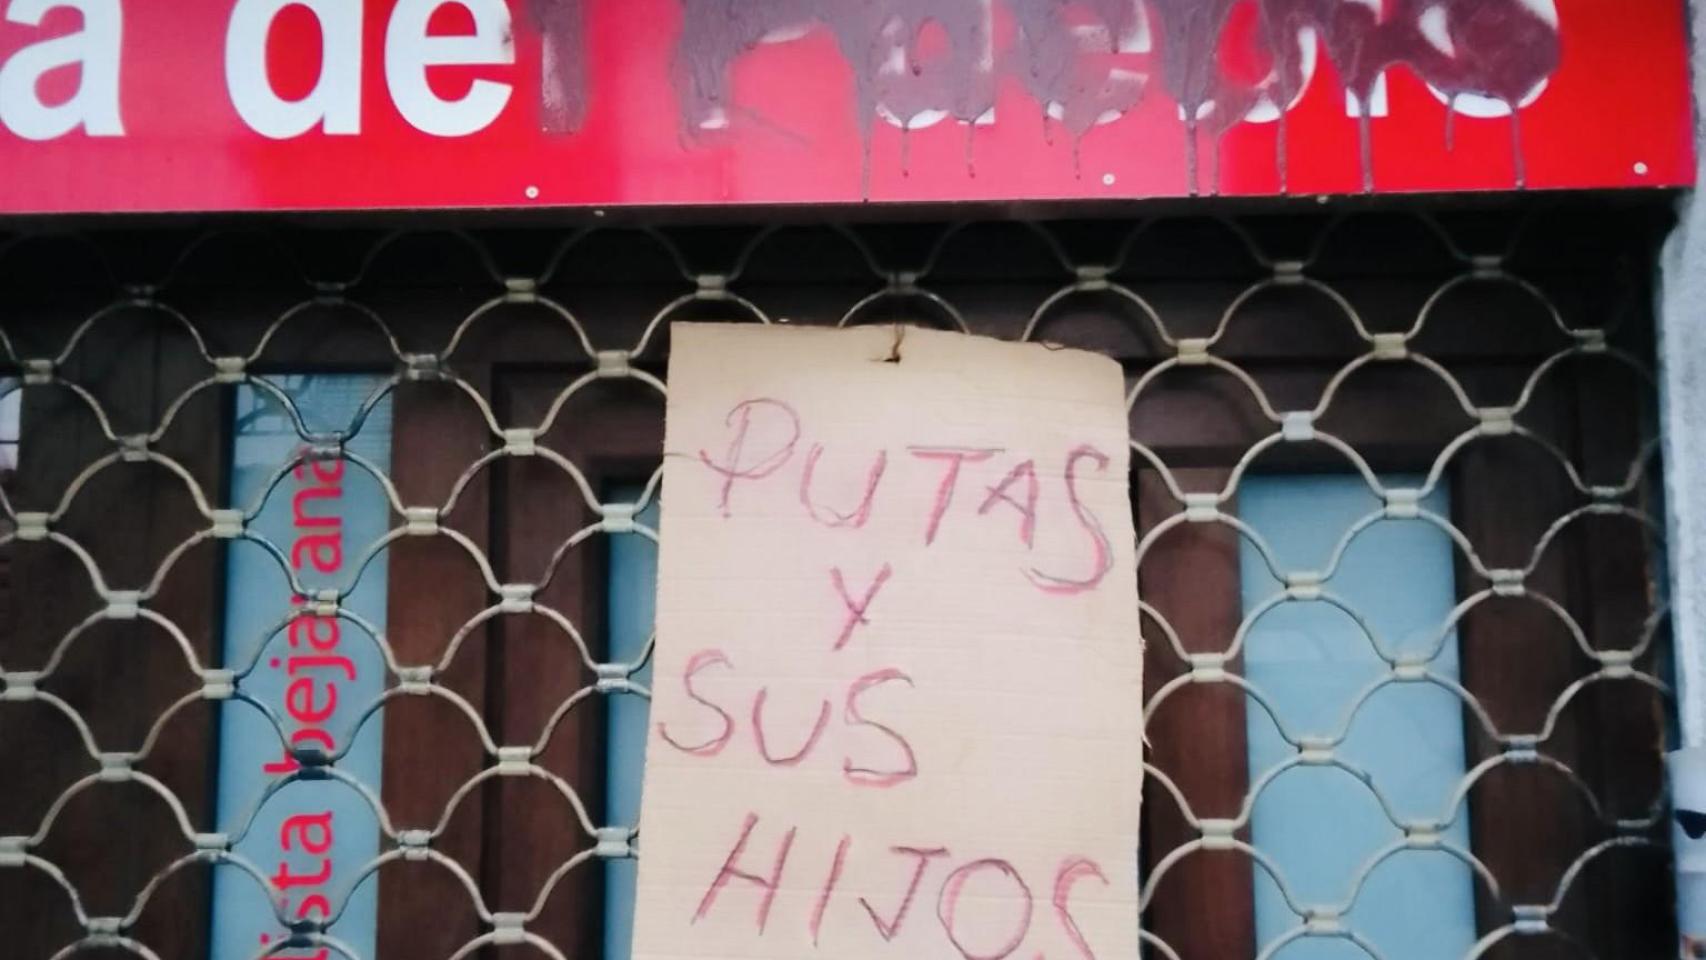 a del Pueblo
lista bejarana
PUTAS
Y
SUS
HIJOS